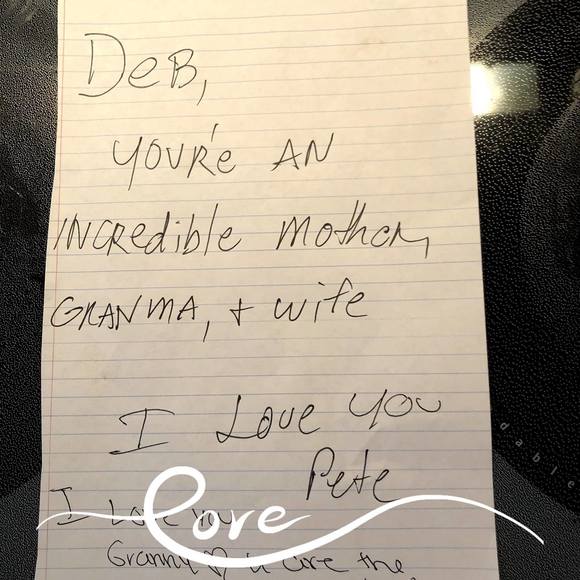 DeB,
YOUR'e AN
INCRedible MotheR,
GRANMA, + wife
I Love YOU
Pete
I Love you
Granny ♡ u are the
love
dable